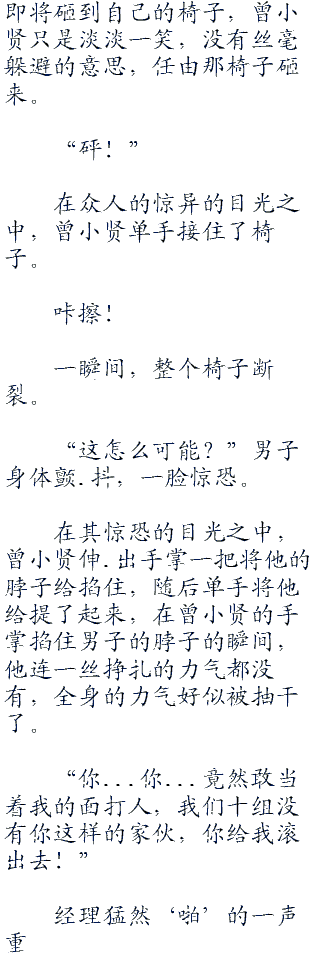 即将砸到自己的椅子，曾小
贤只是淡淡一笑，没有丝毫
躲避的意思，任由那椅子砸
来。
“砰！”
在众人的惊异的目光之
中，曾小贤单手接住了椅
子。
咔擦！
一瞬间，整个椅子断
裂。
“这怎么可能？”男子
身体颤.抖，一脸惊恐。
在其惊恐的目光之中，
曾小贤伸.出手掌一把将他的
脖子给掐住，随后单手将他
给提了起来，在曾小贤的手
掌掐住男子的脖子的瞬间，
他连一丝挣扎的力气都没
有，全身的力气好似被抽干
了。
“你...你...竟然敢当
着我的面打人，我们十组没
有你这样的家伙，你给我滚
出去！”
经理猛然‘啪’的一声
重